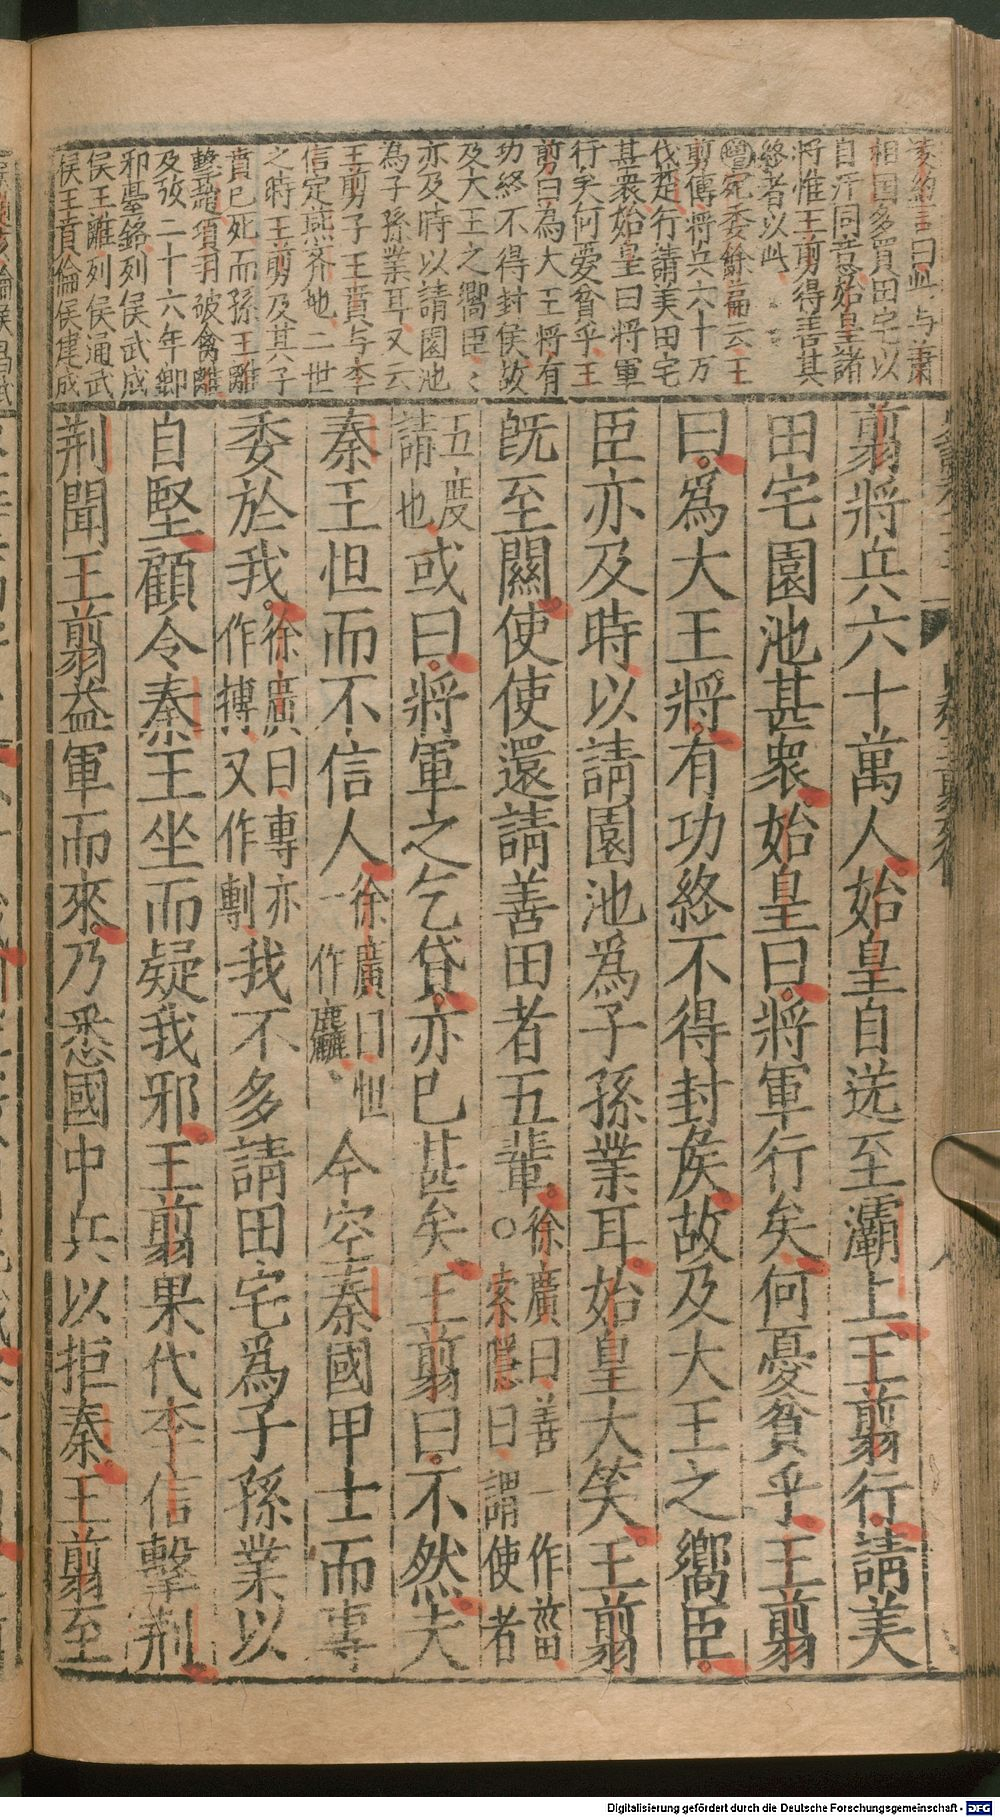 凌約言曰此与蕭
相国多買田宅以
自汙同意始皇諸
将惟王剪得善其
終者以此
增宛委餘篇云王
剪傳将兵六十万
伐楚行請美田宅
甚衆始皇曰将軍
行矣何愛貧乎王
剪曰為大王将有
功終不得封侯故
及大王之嚮臣〻
亦及時以請園池
為子孫業耳又云
王剪子王賁与李
信定燕齊地二世
之時王剪及其子
賁已死而孫王離
擊趙項羽破禽離
及攷二十六年鄒
邪臺銘列侯武成
侯王離列侯通武
侯王賁倫侯建成
翦將兵六十萬人始皇自送至灞上王翦行請美
田宅園池甚衆始皇曰將軍行矣何憂貧乎王翦
曰爲大王將有功終不得封矦故及大王之嚮臣
臣亦及時以請園池爲子孫業耳始皇大笑王翦
旣至關使使還請善田者五輩○徐廣曰善一作菑索隱曰謂使者
五度請也或曰將軍之乞貸亦已甚矣王翦曰不然夫
秦王怚而不信人徐廣曰怚一作麤今空秦國甲士而專
委於我徐廣曰專亦作摶又作剸我不多請田宅爲子孫業以
自堅顧令秦王坐而疑我邪王翦果代李信擊荆
荆聞王翦益軍而來乃悉國中兵以拒秦王翦至
Digitalisierung gefördert durch die Deutsche Forschungsgemeinschaft - DFG